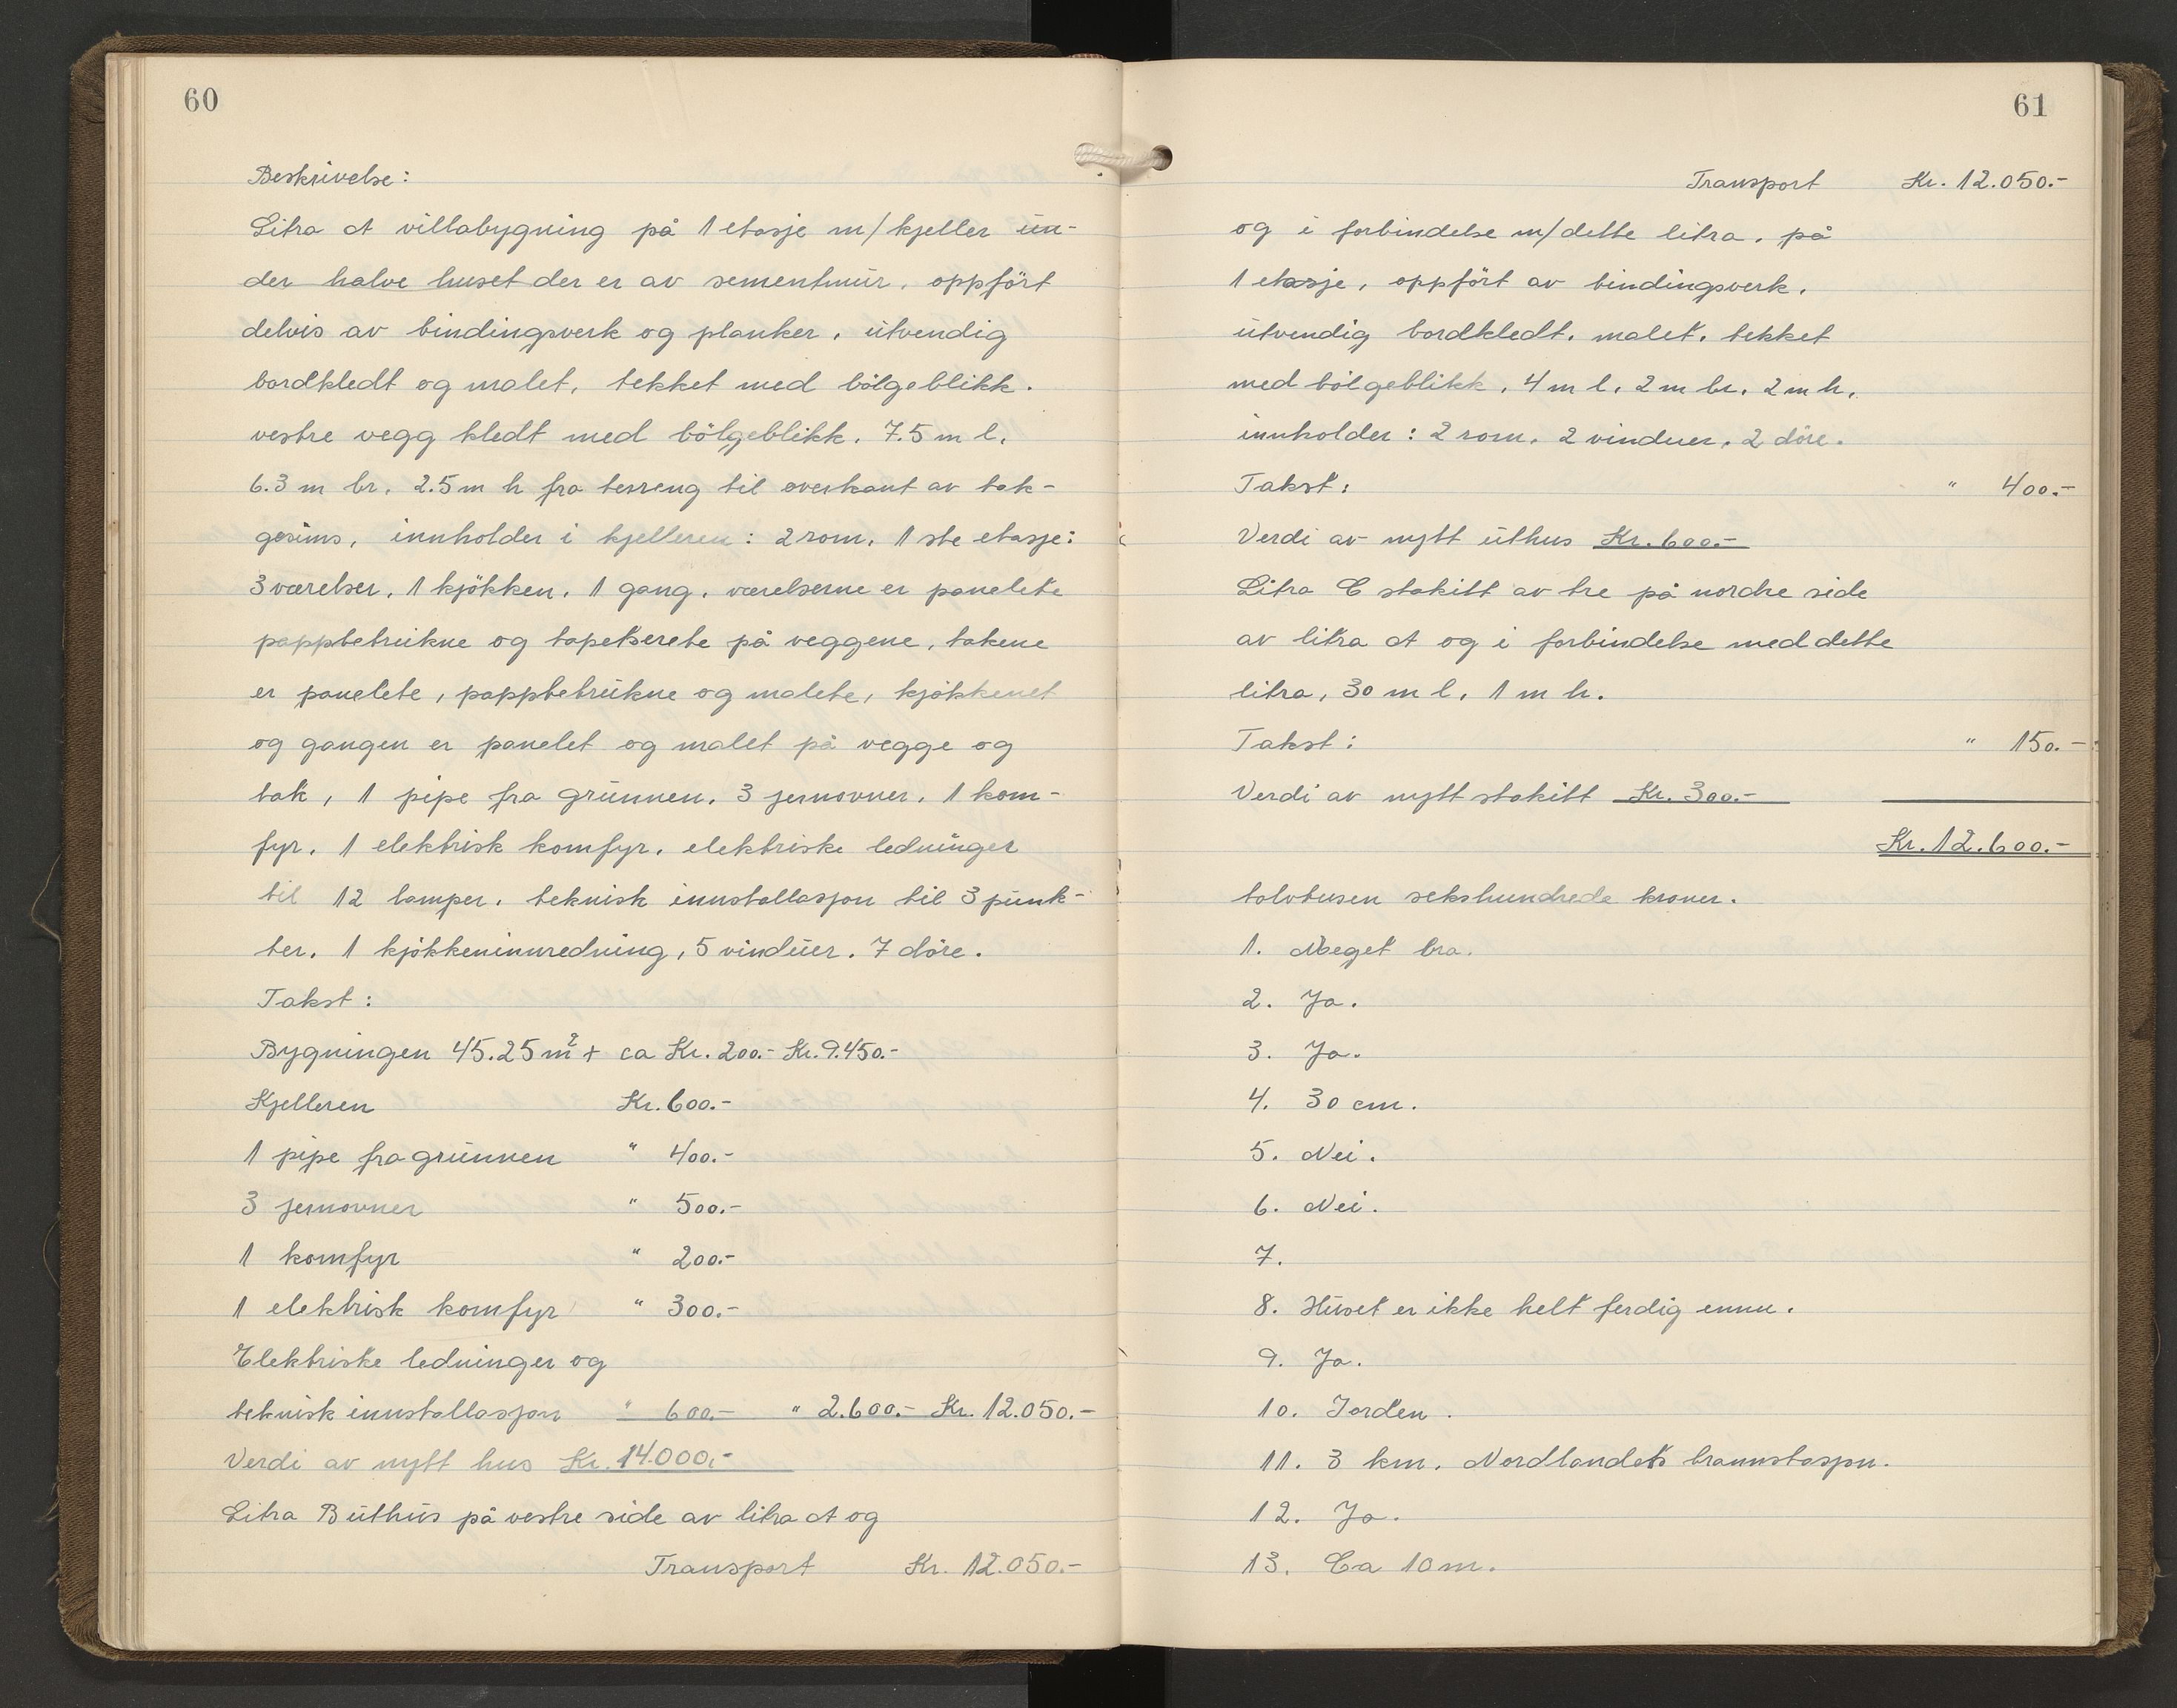 60
Beskrivelse:
Litra A villabygning på 1 etasje m/kjeller un-
der halve huset der er av sementmur, oppført
delvis av bindingsverk og planker, utvendig
bordkledt og malet, tekket med bölgeblikk.
vestre vegg kledt med bölgeblikk. 7.5 m l.
6.3 m br. 2.5 m h fra terreng til overkant av tak-
gesims, innholder i kjelleren: 2 rom. 1 ste etasje:
3 værelser, 1 kjökken, 1 gang, værelserne er panelete
pappbetrukne og tapetserete på veggene, takene
er panelete, pappbetrukne og malete, kjökkenet
og gangen er panelet og malet på vegge og
tak, 1 pipe fra grunnen, 3 jernovner, 1 kom-
fyr, 1 elektrisk komfyr, elektriske ledninger
til 12 lamper, teknisk innstallasjon til 3 punk-
ter. 1 kjökkeninnredning, 5 vinduer. 7 döre.
Takst:
Bygningen 45.25 m² + ca Kr. 200.- Kr. 9.450.-
Kjelleren Kr. 600.-
1 pipe fra grunnen " 400.-
3 jernovner " 500.-
1 komfyr " 200.-
1 elektrisk komfyr " 300.-
Elektriske ledninger og
teknisk innstallasjon " 600.- " 2.600.- Kr. 12.050.-
Verdi av nytt hus Kr. 14.000.-
Litra B uthus på vestre side av litra A og
Transport Kr. 12.050.-
61
Transport Kr. 12.050.-
og i forbindelse m/dette litra, på
1 etasje, oppfört av bindingsverk,
utvendig bordkledt, malet, tekket
med bölgeblikk, 4 m l, 2 m br. 2 m h.
innholder: 2 rom. 2 vinduer. 2 döre.
Takst: " 400.-
Verdi av nytt uthus Kr. 600.-
Litra C stakitt av tre på nordre side
av litra A og i forbindelse med dette
litra, 30 m l, 1 m h.
Takst: " 150.-
Verdi av nytt stakitt Kr. 300.-
Kr. 12.600.-
tolvtusen sekshundrede kroner.
1. Meget bra.
2. Ja.
3. Ja.
4. 30 cm.
5. Nei.
6. Nei.
7.
8. Huset er ikke helt ferdig ennu.
9. Ja.
10. Jorden.
11. 3 km. Nordlandets brannstasjon.
12. Ja.
13. Ca 10 m.